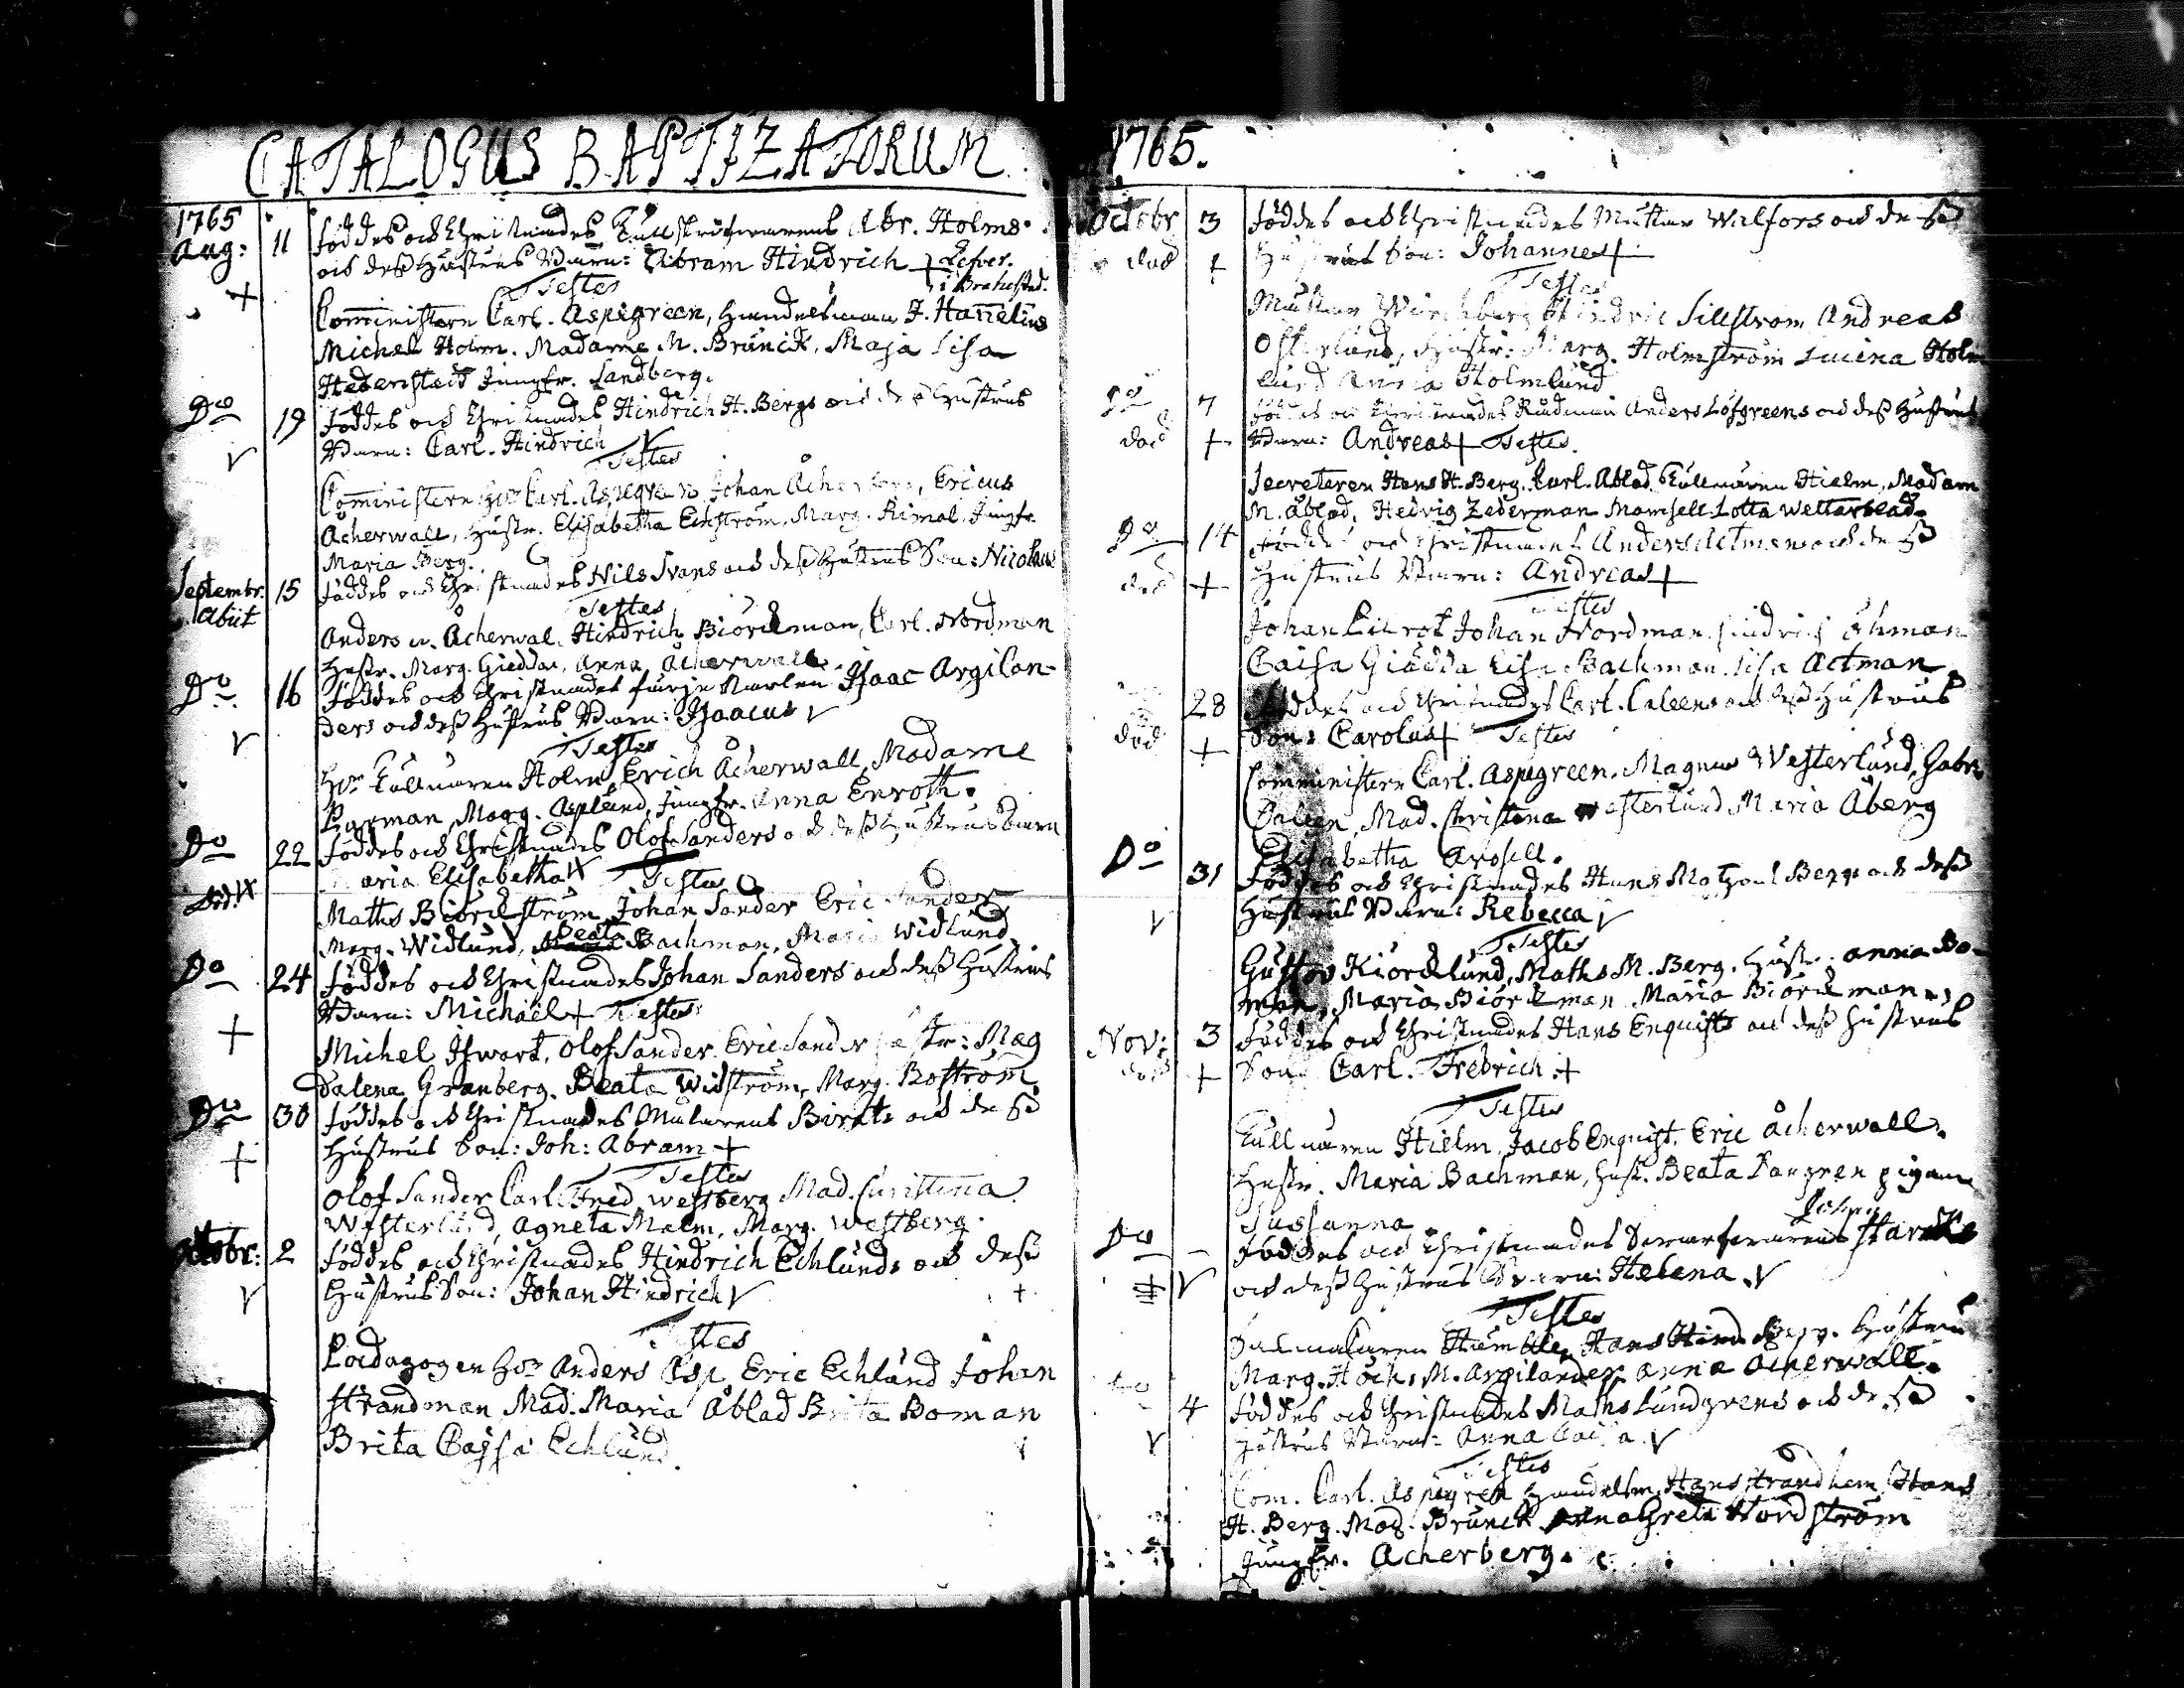 CATALOGUS BAPTIZATORUM
1765
Aug: 11 föddes och Christnades Tullskrifwarens Abr. Holms
och dess Hustrus Barn: Abram Hindrich + Lefver.
+ Testes i Brahestad.
Comministern Carl. Aspegreen, Handelsman J. Hanelius
Michel Holm. Madame M. Brunck, Maja Lisa
Hedenstedt Jungfr. Sandberg.
Do 19 föddes och Christnades Hindrich H. Bergs och des Hustrus
V Barn: Carl. Hindrich V
Testes
Comministern Hr Carl. Aspegren Johan Ericus
Åcherwall, Hustr. Elisabetha Echström, Marg. Rimal. Jungfr.
Maria Berg.
Septembr. 15 föddes och Christnades Nils Svans och dess Hustrus Son: Nicolaus
Abiit Testes
Anders Åcherwal. Hindrich Biörckman, Carl. Nordman
Hustr. Marg. Giedda, Anna Åcherwall.
Do 16 föddes och Christnades färje Karlen Isaac Argilan-
ders och dess Hustrus Barn: Isaacus V
V Testes
Hr Tullnären Holm, Erich Åcherwall, Madame
Borman, Marg. Asplund, Jungfr. Anna Enroth.
Do 22 föddes och Christnades Olof Sanders och dess Hustrus barn
Maria Elisabetha Testes
Död.
Maths Biörckström, Johan Sander Eric Sander
Marg. Widlund, Beata Bachman, Maria Widlund
Do 24 föddes och Christnades Johan Sanders och dess Hustrus
Barn: Michael + Testes
+
Michel Iswart, Olof Sander. Eric Sander Hustr: Mag
dalena Granberg, Beata Widström, Marg. Boström
Do 30 föddes och Christnades Målarens och dess
Hustrus Son: Joh: Abram +
+ Testes
Olof Sander Carl. Fred Westberg Mad. Christina
Westerlund, Agneta Malm, Marg. Westberg.
Octobr: 2 föddes och Christnades Hindrich Echlunds och dess
V Hustrus Son: Johan Hindrich V
Testes
Pædagogen Hr Anders Asp Eric Echlund Johan
Strandman Mad. Maria Åblad Brita Boman
Brita Cajsa Echlund.
1765.
Octobr 3 föddes och Christnades Walfors och dess
död + Hustrus Son: Johannes +
Testes
Hindric Sillstrom Andreas
Österlund, Hustr: Marg. Holmström Lucina Holm
lund Anna Holmlund
Do 7 föddes och Christnades Rådman Anders Löfgreens och dess Hustrus
död + Barn: Andreas + Testes.
Secreteren Hans H. Berg. Carl. Åblad. Tullnären Hielm, Madam
M. Åblad, Hedvig Zederman Mamsell. Lotta Wetterblad.
Do 14 föddes och Christnades Anders Actmans och dess
död + Hustrus Barn: Andreas +
Testes
Johan Johan Nordman Hindrich Öhman
Caisa Giädda Lisa Bachman. Lisa Actman
28 föddes och Christnades Carl. Caleens och dess Hustrus
död + Son: Carolus + Testes
Comministern Carl. Aspegreen. Magnus Westerlund, Gabr.
Caleen, Mad. Christina Westerlund Maria Åberg
Elisabetha Arosell.
Do 31 föddes och Christnades Hans Bergs och dess
V Hustrus Barn: Rebecca V
Testes
Gustav Kiörcklund, Maths M. Berg. Hustr. Anna Bo-
man, Maria Biörckman Maria Biörckman
Nov: 3 föddes och Christnades Hans Enquists och dess Hustrus
död + Son Carl. Fredrich. +
Testes
Tullnären Hielm, Jacob Enquist, Eric Åcherwall.
Hustr. Maria Bachman, Hust. Beata pigan
Sussanna.
Do - föddes och Christnades Johan Starck
V och dess Hustrus Barn: Helena. V
Testes
Hans Hind Berg. Hustru
Marg. Höck, M. Argilander Anna Åcherwall.
Do 4 föddes och Christnades Maths Lundgrens och dess
V Hustrus Barn: Anna Caisa. V
Testes
Com. Carl. Aspegren Handelsm. Hans Strandhem, Hans
H. Berg. Mad. Brunck Anna Greta Nordström
Jungfr. Acherberg.